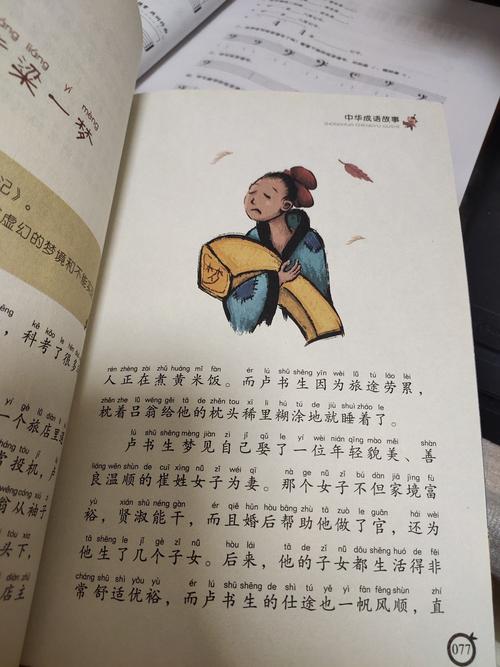 liáng yī mèng
梁一梦
记》。
虚幻的梦境和不能
，科考了很多
一个旅店里
常投机，卢
翁从袖子
头下，
店主
中华成语故事
ZHONGHUA CHENGYU GUSHI
梦
rén zhèng zài zhǔ huáng mǐ fàn ér lú shū shēng yīn wèi lǚ tú láo lèi
人正在煮黄米饭。而卢书生因为旅途劳累，
zhěn zhe lǚ wēng gěi tā de zhěn tou xī li hú tú de jiù shuì zháo le
枕着吕翁给他的枕头稀里糊涂地就睡着了。
lú shū shēng mèng jiàn zì jǐ qǔ le yí wèi nián qīng mào měi shàn
卢书生梦见自己娶了一位年轻貌美、善
liáng wēn shùn de cuī xìng nǚ zǐ wéi qī nà ge nǚ zǐ bú dàn jiā jìng fù
良温顺的崔姓女子为妻。那个女子不但家境富
yù xián shū néng gàn ér qiě hūn hòu bāng zhù tā zuò le guān hái wèi
裕，贤淑能干，而且婚后帮助他做了官，还为
tā shēng le jǐ gè zǐ nǚ hòu lái tā de zǐ nǚ dōu shēng huó de fēi
他生了几个子女。后来，他的子女都生活得非
cháng shū shì yōu yù ér lú shū shēng de shì tú yě yì fān fēng shùn zhí
常舒适优裕，而卢书生的仕途也一帆风顺，直
077